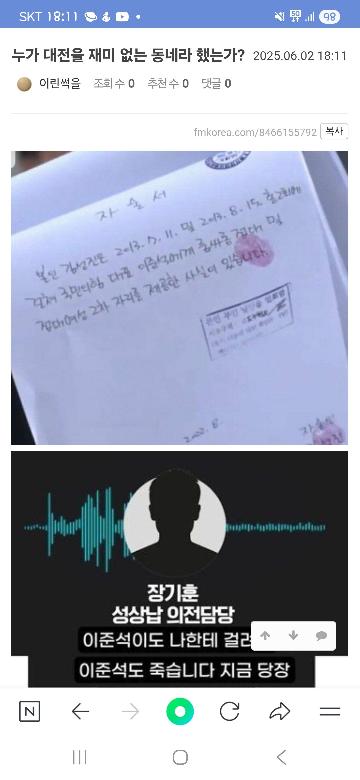 SKT 18:11
98
누가 대전을 재미 없는 동네라 했는가? 2025.06.02 18:11
어린썩을 조회수 0 추천수 0 댓글 0
fmkorea.com/8466155792 복사
자 술 서
본인 김성진은 2013. 7. 11. 및 2013. 8. 15. 총 2회에
걸쳐 국민의힘 대표 이준석에게 술 접대 및
접대여성 2차 자리를 제공한 사실이 있습니다.
2022. 8.
장기훈
성상납 의전담당
이준석이도 나한테 걸려
이준석도 죽습니다 지금 당장
N